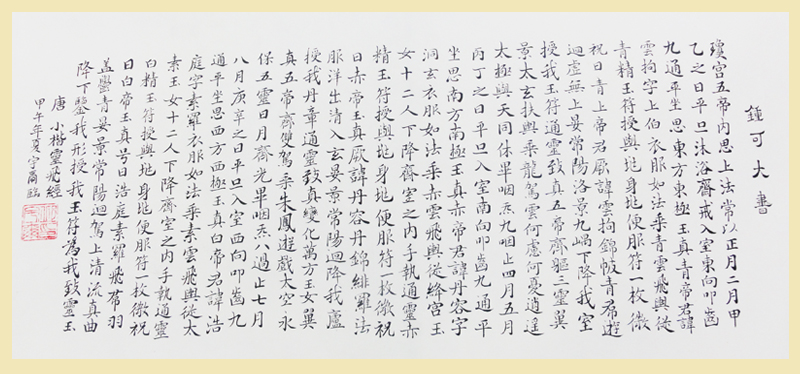 鍾可大書
瓊宮五帝內思上法常以正月二月甲
乙之日平旦沐浴齋戒入室東向叩齒
九通平坐思東方東極玉真青帝君諱
雲拘字上伯衣服如法乘青雲飛輿從
青精玉符授與兆身兆便服符一枚微
祝曰青上帝君厥諱雲拘錦帔青帬遊
迴虛無上晏常陽洛景九嵎下降我室
授我玉符通靈致真五帝齊軀三靈翼
景太玄扶輿乘龍駕雲何慮何憂逍遙
太極與天同休畢咽炁九咽止四月五月
丙丁之日平旦入室南向叩齒九通平
坐思南方南極玉真赤帝君諱丹容字
洞玄衣服如法乘赤雲飛輿從絳宮玉
女十二人下降齋室之內手執通靈赤
精玉符授與兆身兆便服符一枚微祝
曰赤帝玉真厥諱丹容丹錦緋羅法
服洋出清入玄晏景常陽迴降我廬
授我丹章通靈致真變化萬方玉女翼
真五帝齊雙駕乘朱鳳遊戲太空永
保五靈日月齊光畢咽炁八過止七月
八月庚辛之日平旦入室西向叩齒九
通平坐思西方西極玉真白帝君諱浩
庭字素羅衣服如法乘素雲飛輿從太
素玉女十二人下降齋室之內手執通靈
白精玉符授與兆身兆便服符一枚微祝
曰白帝玉真号曰浩庭素羅飛帬羽
蓋鬱青晏景常陽迴駕上清流真曲
降下鑒我形授我玉符為我致靈玉
唐 小楷靈飛經
甲午年夏宇